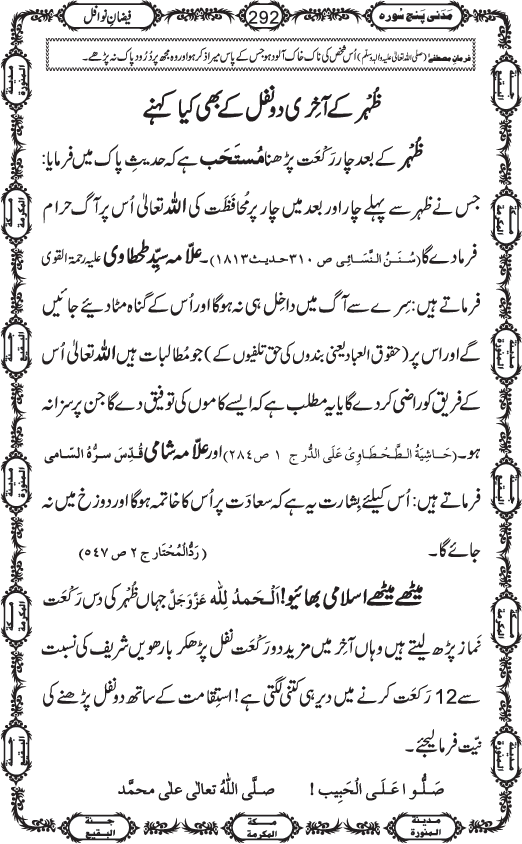 مَدَنی پنج سُورہ
292
فیضانِ نوافل
فرمانِ مصطفےٰ (صلی اللہ تعالیٰ علیہ والہ وسلم) اُس شخص کی ناک خاک آلود ہو جس کے پاس میرا ذکر ہو اور وہ مجھ پر دُرُود پاک نہ پڑھے۔
ظُہر کے آخِری دو نفل کے بھی کیا کہنے
ظُہر کے بعد چار رَکْعَت پڑھنا مُستَحَب ہے کہ حدیثِ پاک میں فرمایا:
جس نے ظہر سے پہلے چار اور بعد میں چار پر مُحافَظَت کی اللہ تعالیٰ اُس پر آگ حرام
فرما دے گا (سُنَنُ النَّسَائِی ص ۳۱۰ حدیث ۱۸۱۳)۔ علّامہ سیِّد طحطاوی علیہ رحمۃ القوی
فرماتے ہیں: سِرے سے آگ میں داخِل ہی نہ ہوگا اور اُس کے گناہ مٹا دیئے جائیں
گے اور اس پر (حقوق العباد یعنی بندوں کی حق تلفیوں کے) جو مُطالبات ہیں اللہ تعالیٰ اُس
کے فریق کو راضی کر دے گا یا یہ مطلب ہے کہ ایسے کاموں کی توفیق دے گا جن پر سزا نہ
ہو۔ (حَاشِیَۃُ الطَّحْطَاوِی عَلَی الدُّر ج ۱ ص ۲۸۴) اور علّامہ شامی قُدِّسَ سِرُّہُ السّامی
فرماتے ہیں: اُس کیلئے بِشارت یہ ہے کہ سعادَت پر اُس کا خاتمہ ہوگا اور دوزخ میں نہ
جائے گا۔ (رَدُّالْمُحْتَار ج ۲ ص ۵۴۷)
میٹھے میٹھے اسلامی بھائیو! اَلْحَمدُ لِلّٰہ عَزَّوَجَلَّ جہاں ظُہر کی دس رَکْعَت
نَماز پڑھ لیتے ہیں وہاں آخِر میں مزید دو رَکْعَت نفل پڑھ کر بارھویں شریف کی نسبت
سے 12 رَکْعَت کرنے میں دیر ہی کتنی لگتی ہے! استِقامت کے ساتھ دو نفل پڑھنے کی
نیّت فرما لیجئے۔
صَلُّوا عَلَی الْحَبِیب! صلَّی اللہُ تعالٰی علٰی محمَّد
مدینۃ المنورۃ
مکۃ المکرمۃ
جنۃ البقیع
مدینۃ المنورۃ
مکۃ المکرمۃ
جنۃ البقیع
جنۃ البقیع
مکۃ المکرمۃ
مدینۃ المنورۃ
جنۃ البقیع
مکۃ المکرمۃ
مدینۃ المنورۃ
مدینۃ المنورۃ
مکۃ المکرمۃ
جنۃ البقیع